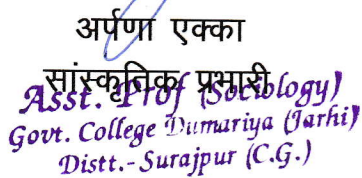 अर्पणा एक्का
सांस्कृतिक प्रभारी
Asst. Prof (Sociology)
Govt. College Dumariya (Jarhi)
Distt.- Surajpur (C.G.)